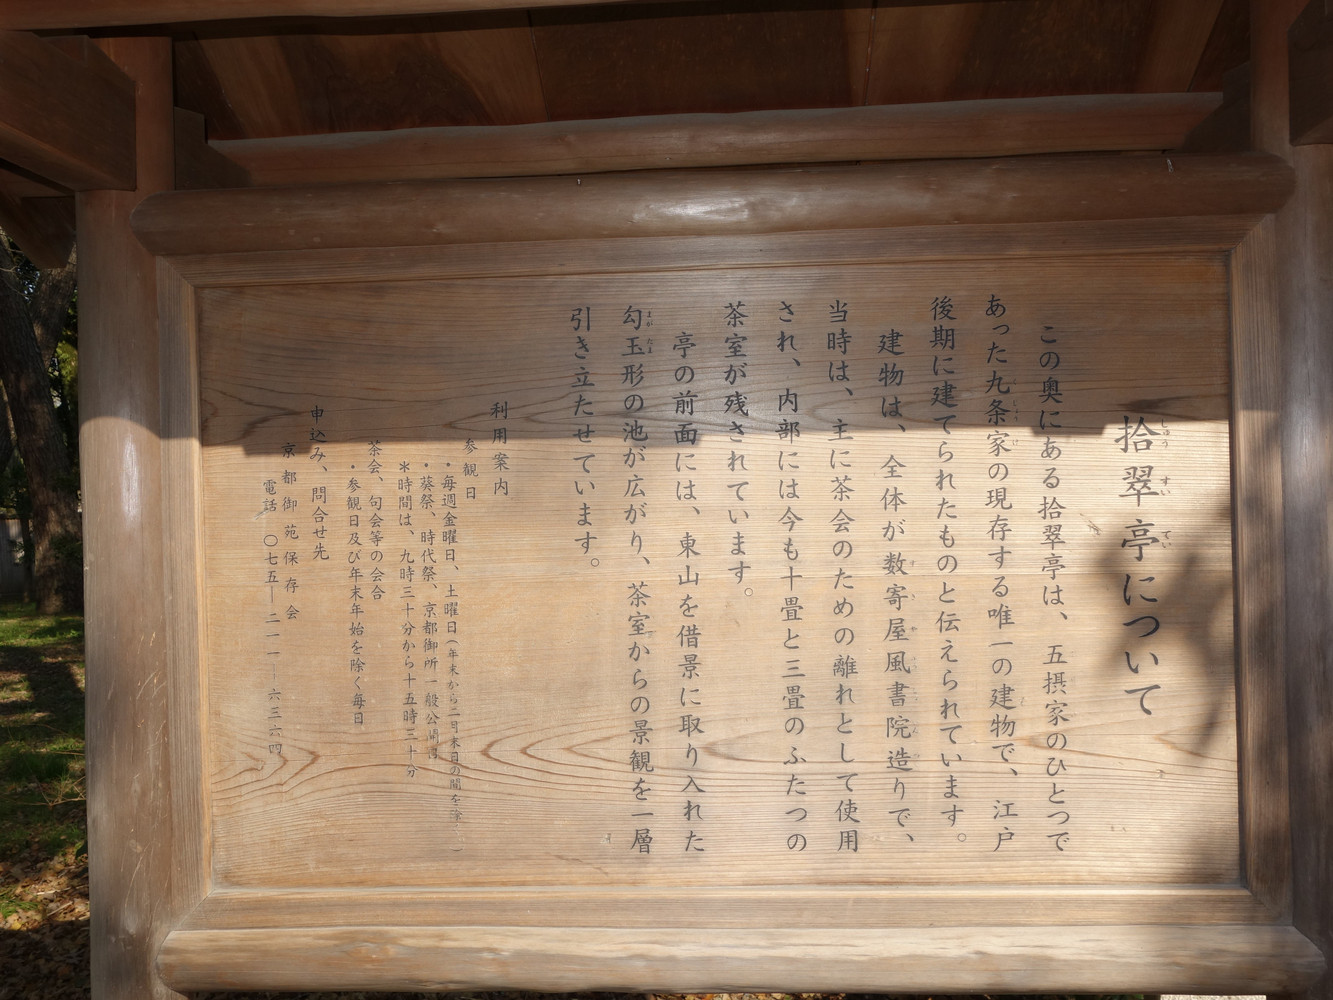 拾翠亭について
この奥にある拾翠亭は、五摂家のひとつで
あった九条家の現存する唯一の建物で、江戸
後期に建てられたものと伝えられています。
建物は、全体が数寄屋風書院造りで、
当時は、主に茶会のための離れとして使用
され、内部には今も十畳と三畳のふたつの
茶室が残されています。
亭の前面には、東山を借景に取り入れた
勾玉形の池が広がり、茶室からの景観を一層
引き立たせています。
利用案内
参観日
・毎週金曜日、土曜日(年末から二月末日の間を除く)
・葵祭、時代祭、京都御所一般公開日
＊時間は、九時三十分から十五時三十分
茶会、句会等の会合
・参観日及び年末年始を除く毎日
申込み、問合せ先
京都御苑保存会
電話 〇七五―二一一―六三六四